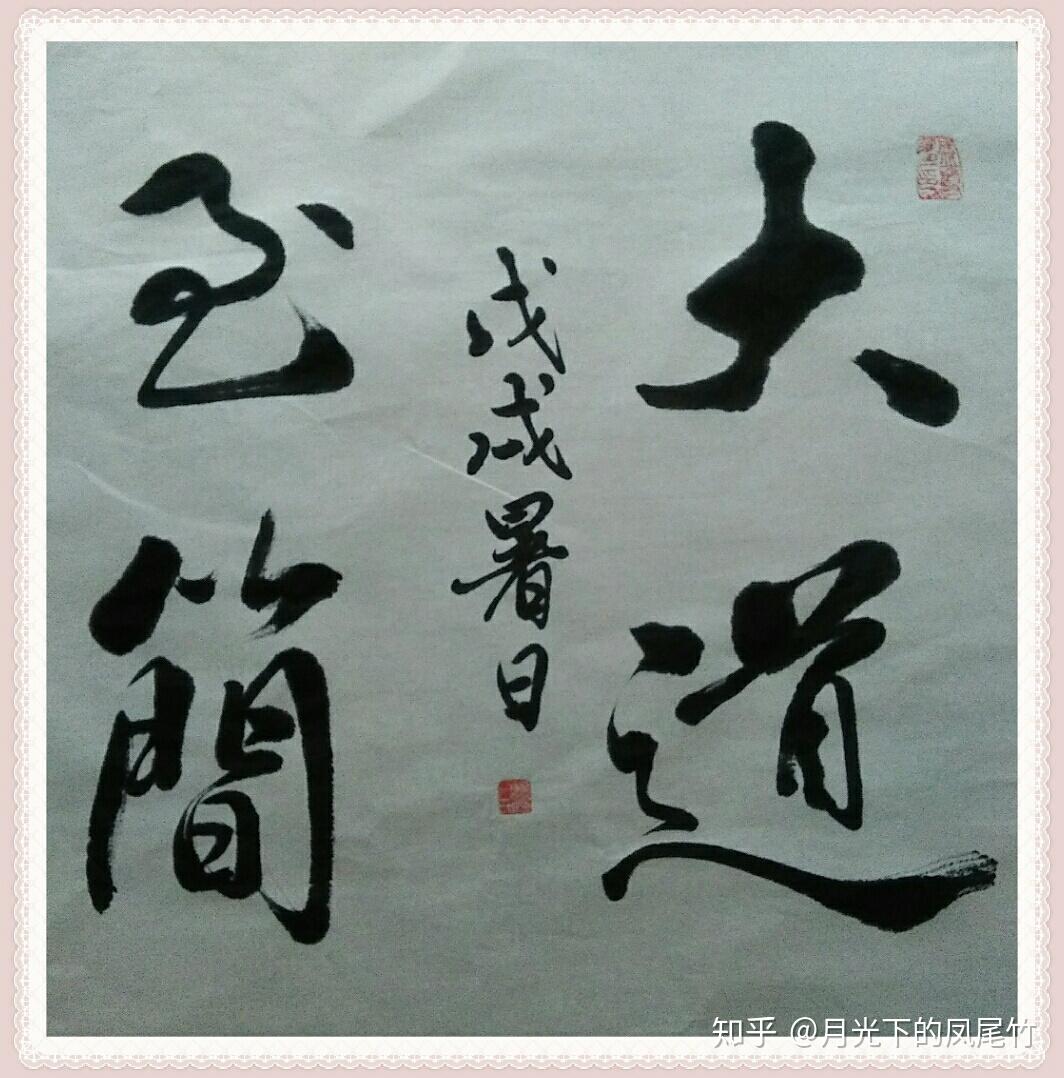 大道
至簡
戊戌暑日
知乎 @月光下的凤尾竹